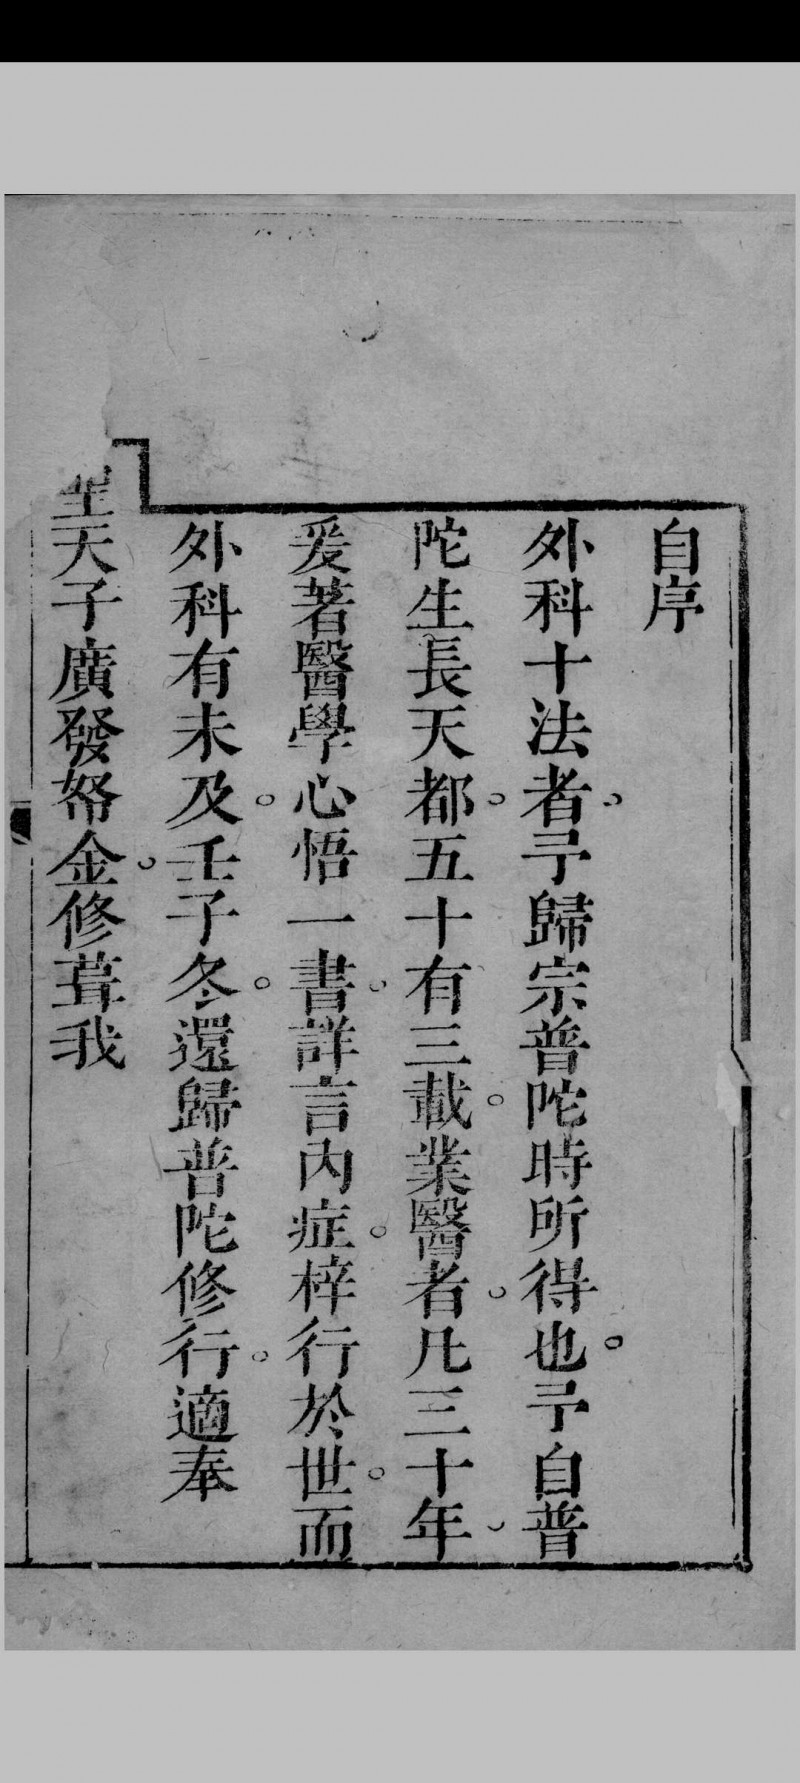 自序
外科十法者予歸宗普陀時所得也予自普
陀生長天都五十有三載業醫者凡三十年
爰著醫學心悟一書詳言內症梓行於世而
外科有未及壬子冬還歸普陀修行適奉
聖天子廣發帑金修葺我